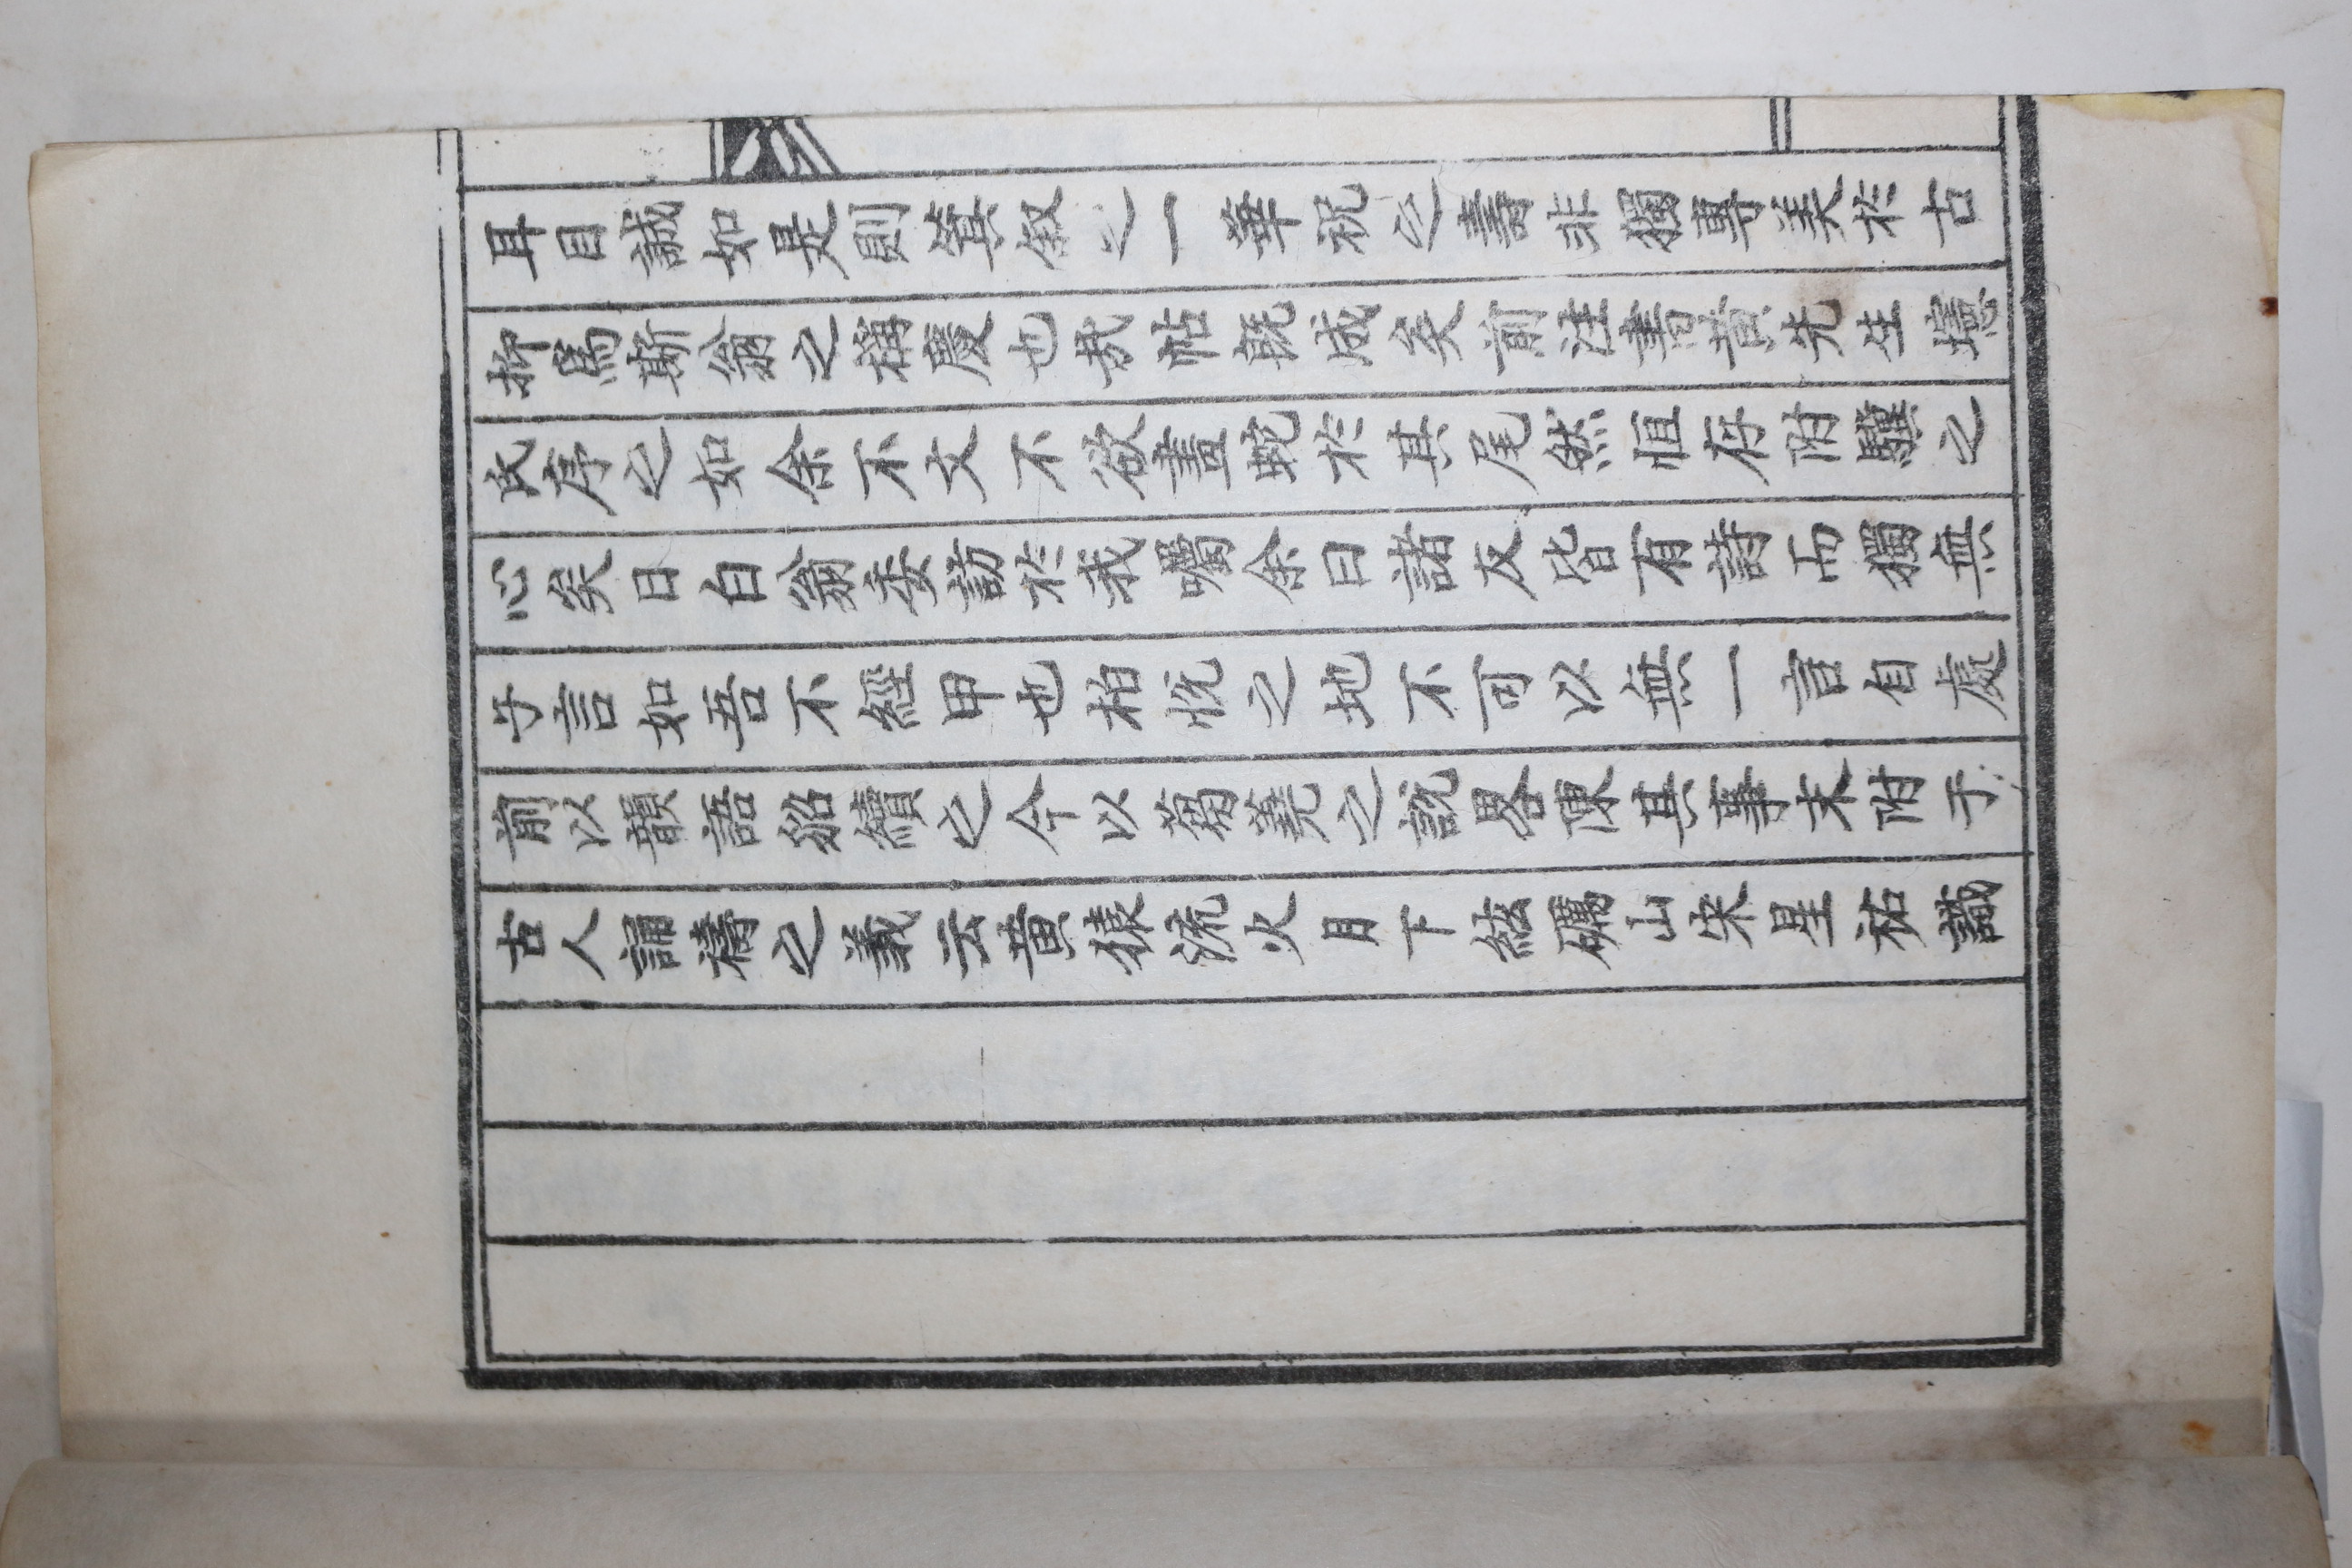 耳目誠如是則箕叙之一華祝之壽非獨專美於古
抑爲斯翁之稱慶也哉帖旣成矣前注書黃先生據
氏序之如余不文不欲畫蛇於其尾然恒存附驥之
心矣日白翁委訪於我囑余曰諸友皆有詩而獨無
子言如吾不經甲也柏悅之地不可以無一言自處
前以韻語貂續之今以蒭蕘之說畧陳其事末附于
古人誦禱之義云黃猿流火月下絃礪山宋星祐識